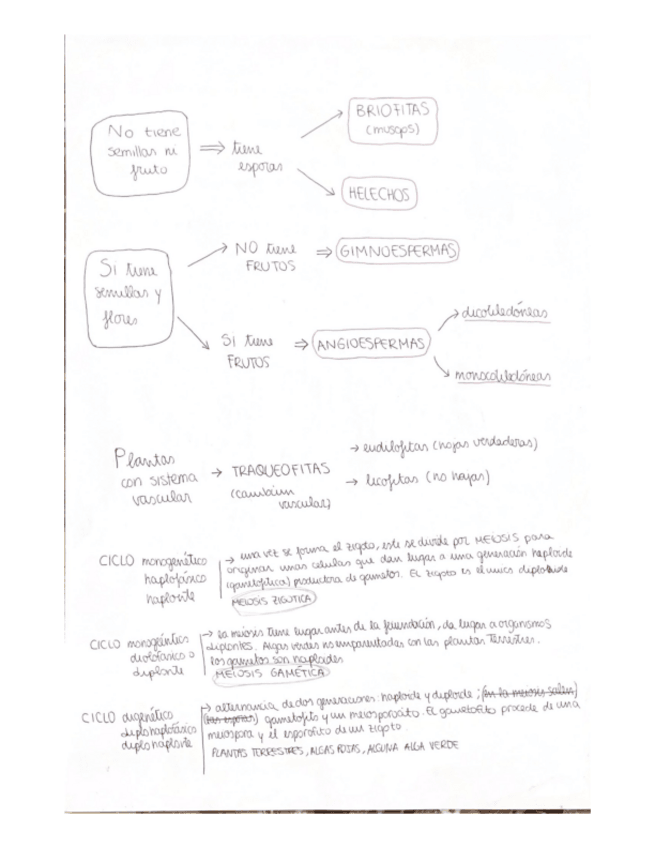 No tiene
semillas ni
fruto
⇒ tiene
esporas
BRIOFITAS
(musgos)
HELECHOS
Si tiene
semillas y
flores
NO tiene
FRUTOS
⇒ GIMNOESPERMAS
Si tiene
FRUTOS
⇒ ANGIOESPERMAS
dicotiledóneas
monocotiledóneas
Plantas
con sistema
vascular
→ TRAQUEOFITAS
(cambium
vascular)
→ eudilofitas (hojas verdaderas)
→ licofitas (no hojas)
CICLO monogenético
haplofásico
haplonte
→ una vez se forma el zigoto, este se divide por MEIOSIS para
originar unas celulas que dan lugar a una generación haploide
(gametofítica) productora de gametos. El zigoto es el unico diploide
MEIOSIS ZIGÓTICA
CICLO monogenético
diplofásico o
diplonte
→ la meiosis tiene lugar antes de la fecundación, da lugar a organismos
diplontes. Algas verdes no emparentadas con las plantas terrestres.
los gametos son haploides
MEIOSIS GAMÉTICA
CICLO digenético
diplohaplofásico
diplohaplonte
→ alternancia de dos generaciones: haploide y diploide; (en la meiosis salen)
gametofito y un meiosporofito. El gametofito procede de una
meiospora y el esporofito de un zigoto.
PLANTAS TERRESTRES, ALGAS ROJAS, ALGUNA ALGA VERDE